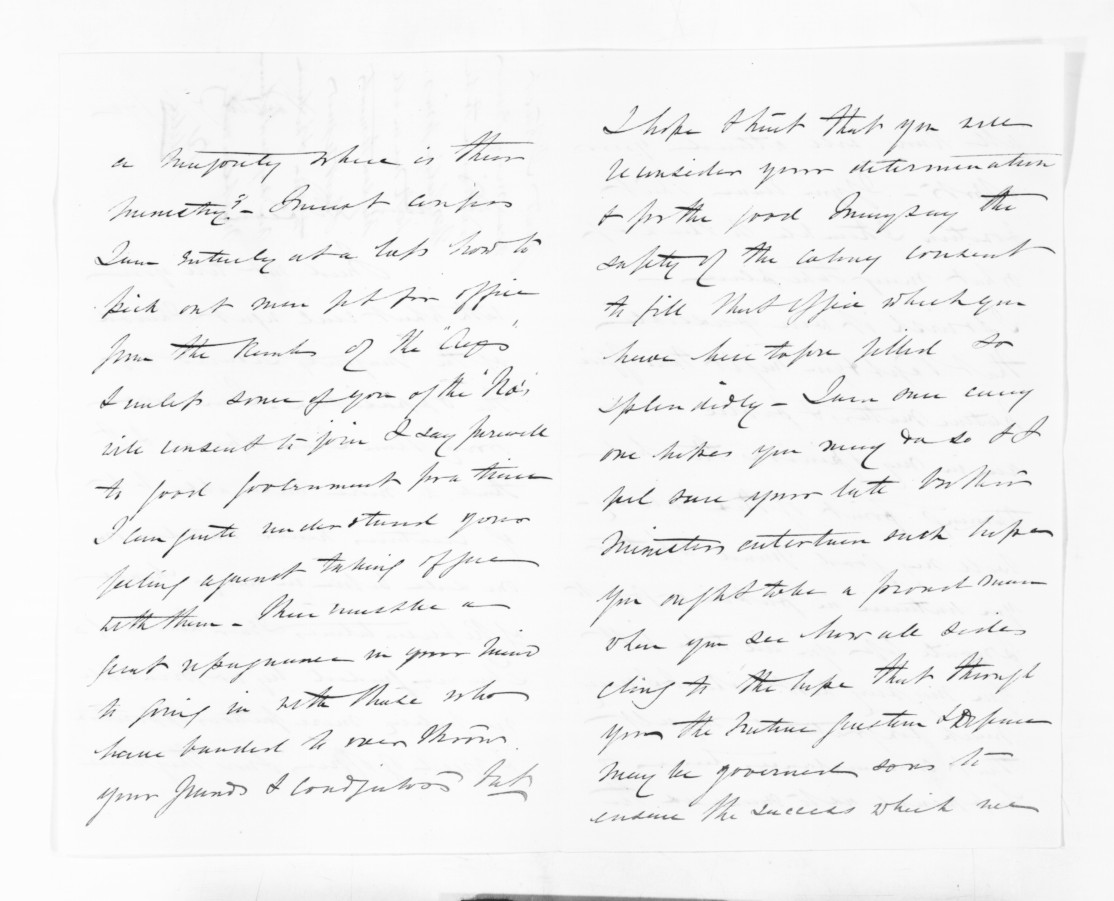 a majority where is their
Ministry? - I must confess
I am entirely at a loss how to
pick out men fit for office
from the Ranks of the "Ayes"
& unless some of you of the "No's
will consent to join I say farewell
to good government for a time
I can quite understand your
feeling against taking office
with them - There must be a
great repugnance in your mind
to going in with those who
have banded to over throw
your friends & Coadjutors but
I hope & trust that you will
reconsider your determination
& for the good I may say the
safety of the Colony consent
to fill that Office which you
have here tofore filled so
splendidly - I am sure every
one hopes you may do so & I
feel sure your late brother
Ministers entertain such hope
You ought to be a proud man
when you see how all sides
cling to the hope that through
you the Native question & Defence
may be governed so as to
ensure the success which we